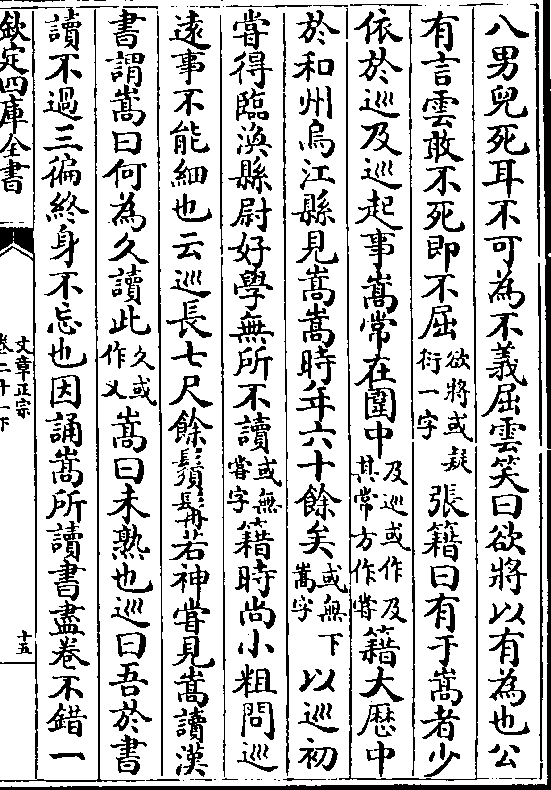 八男兒死耳不可為不義屈雲笑曰欲將以有為也公
有言雲敢不死即不屈欲將或疑衍一字張籍曰有于嵩者少
依於巡及巡起事嵩常在圍中及巡或作及其常方作嘗籍大厯中
於和州烏江縣見嵩嵩時年六十餘矣或無下嵩字以巡初
嘗得臨渙縣尉好學無所不讀或無嘗字籍時尚小粗問巡
遠事不能細也云巡長七尺餘鬚髯若神嘗見嵩讀漢
書謂嵩曰何為久讀此久或作又嵩曰未熟也巡曰吾於書
讀不過三徧終身不忘也因誦嵩所讀書盡卷不錯一
欽定四庫全書
文章正宗
卷二十一下
十五